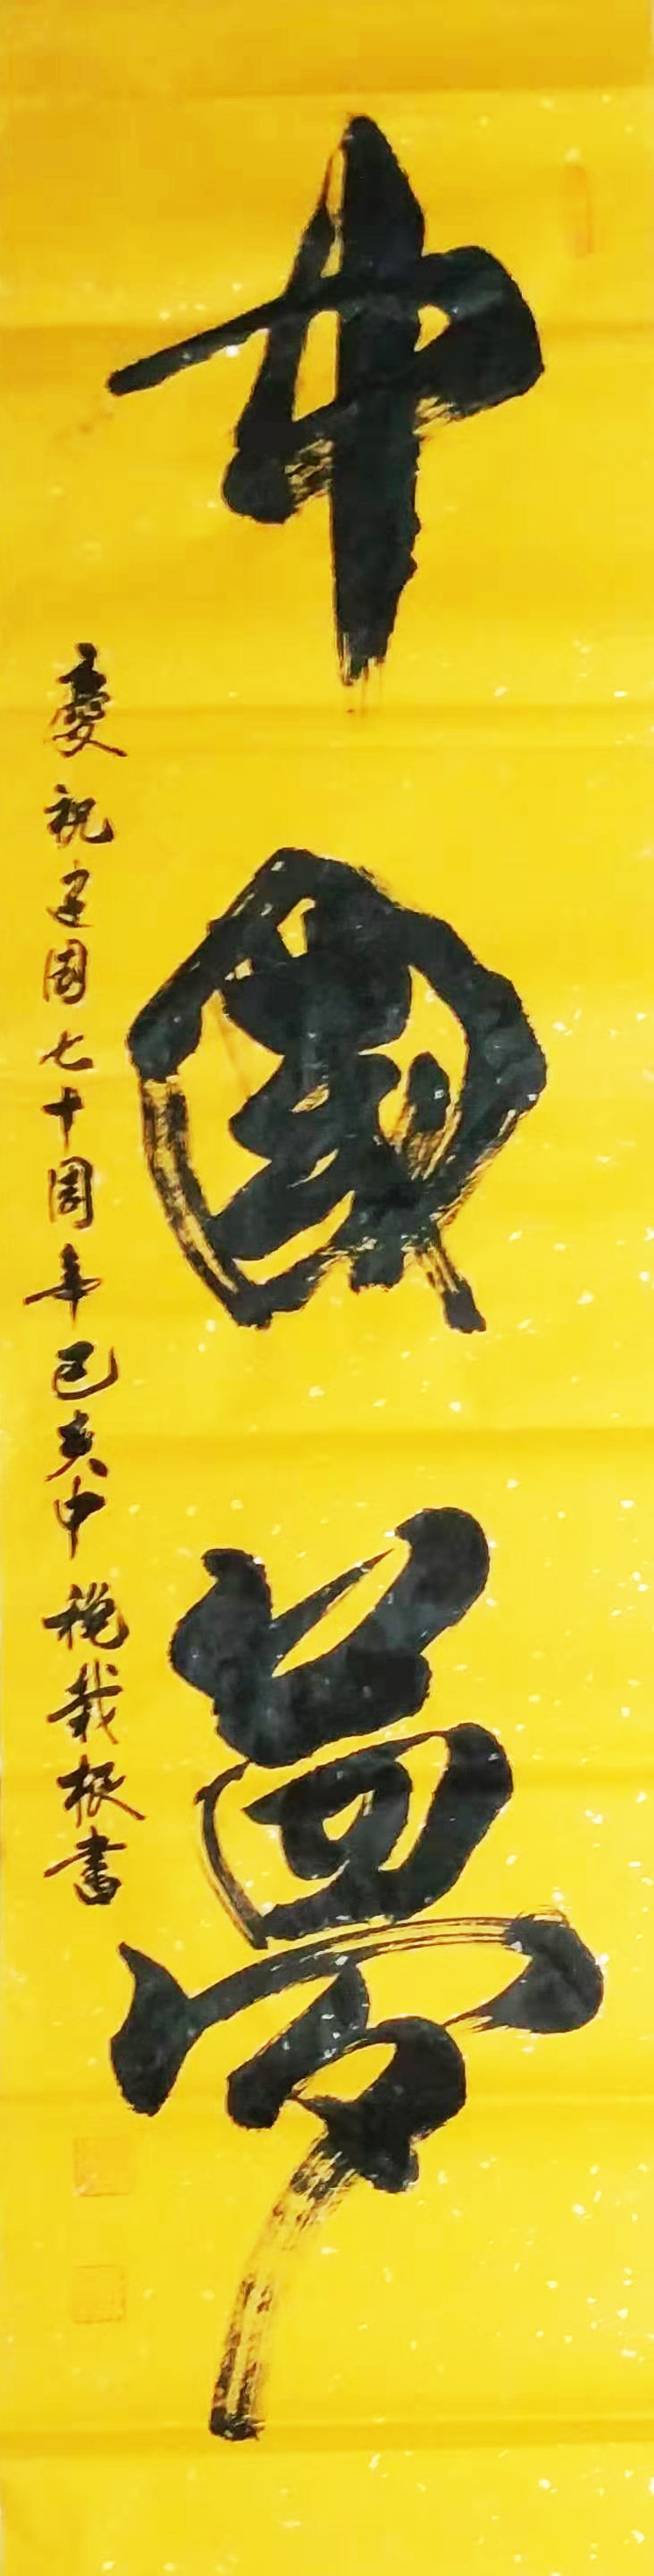 中國夢
慶祝建国七十周年己亥中税栽根書